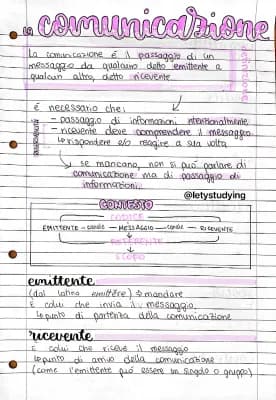 la comunicazione
La comunicazione è il passaggio di un
messaggio da qualcuno detto emittente a
qualcun altro, detto ricevente.
definizione
È necessario che:
- passaggio di informazioni intenzionalmente
- ricevente deve comprendere il messaggio
↳ rispondere e/o reagire a sua volta
↳ se mancano, non si può parlare di
comunicazione ma di passaggio di
informazioni.
@letystudying
CONTESTO
CODICE
EMITTENTE - canale - MESSAGGIO - canale - RICEVENTE
REFERENTE
SCOPO
emittente
(dal latino emittere) → mandare
È colui che invia il messaggio.
↳ punto di partenza della comunicazione
ricevente
È colui che riceve il messaggio
↳ punto di arrivo della comunicazione
(come l'emittente può essere un singolo o gruppo)